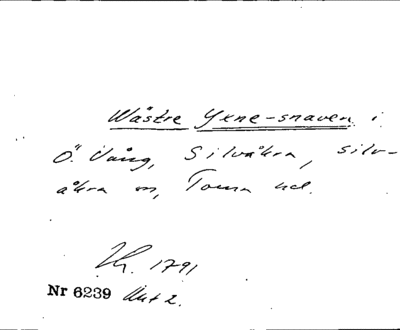 Wästre Yxne-snaven i
Ö. Vång, Silvåkra, Silv-
åkra sn, Torna hd.
1791
Nr 6239 Akt 2.